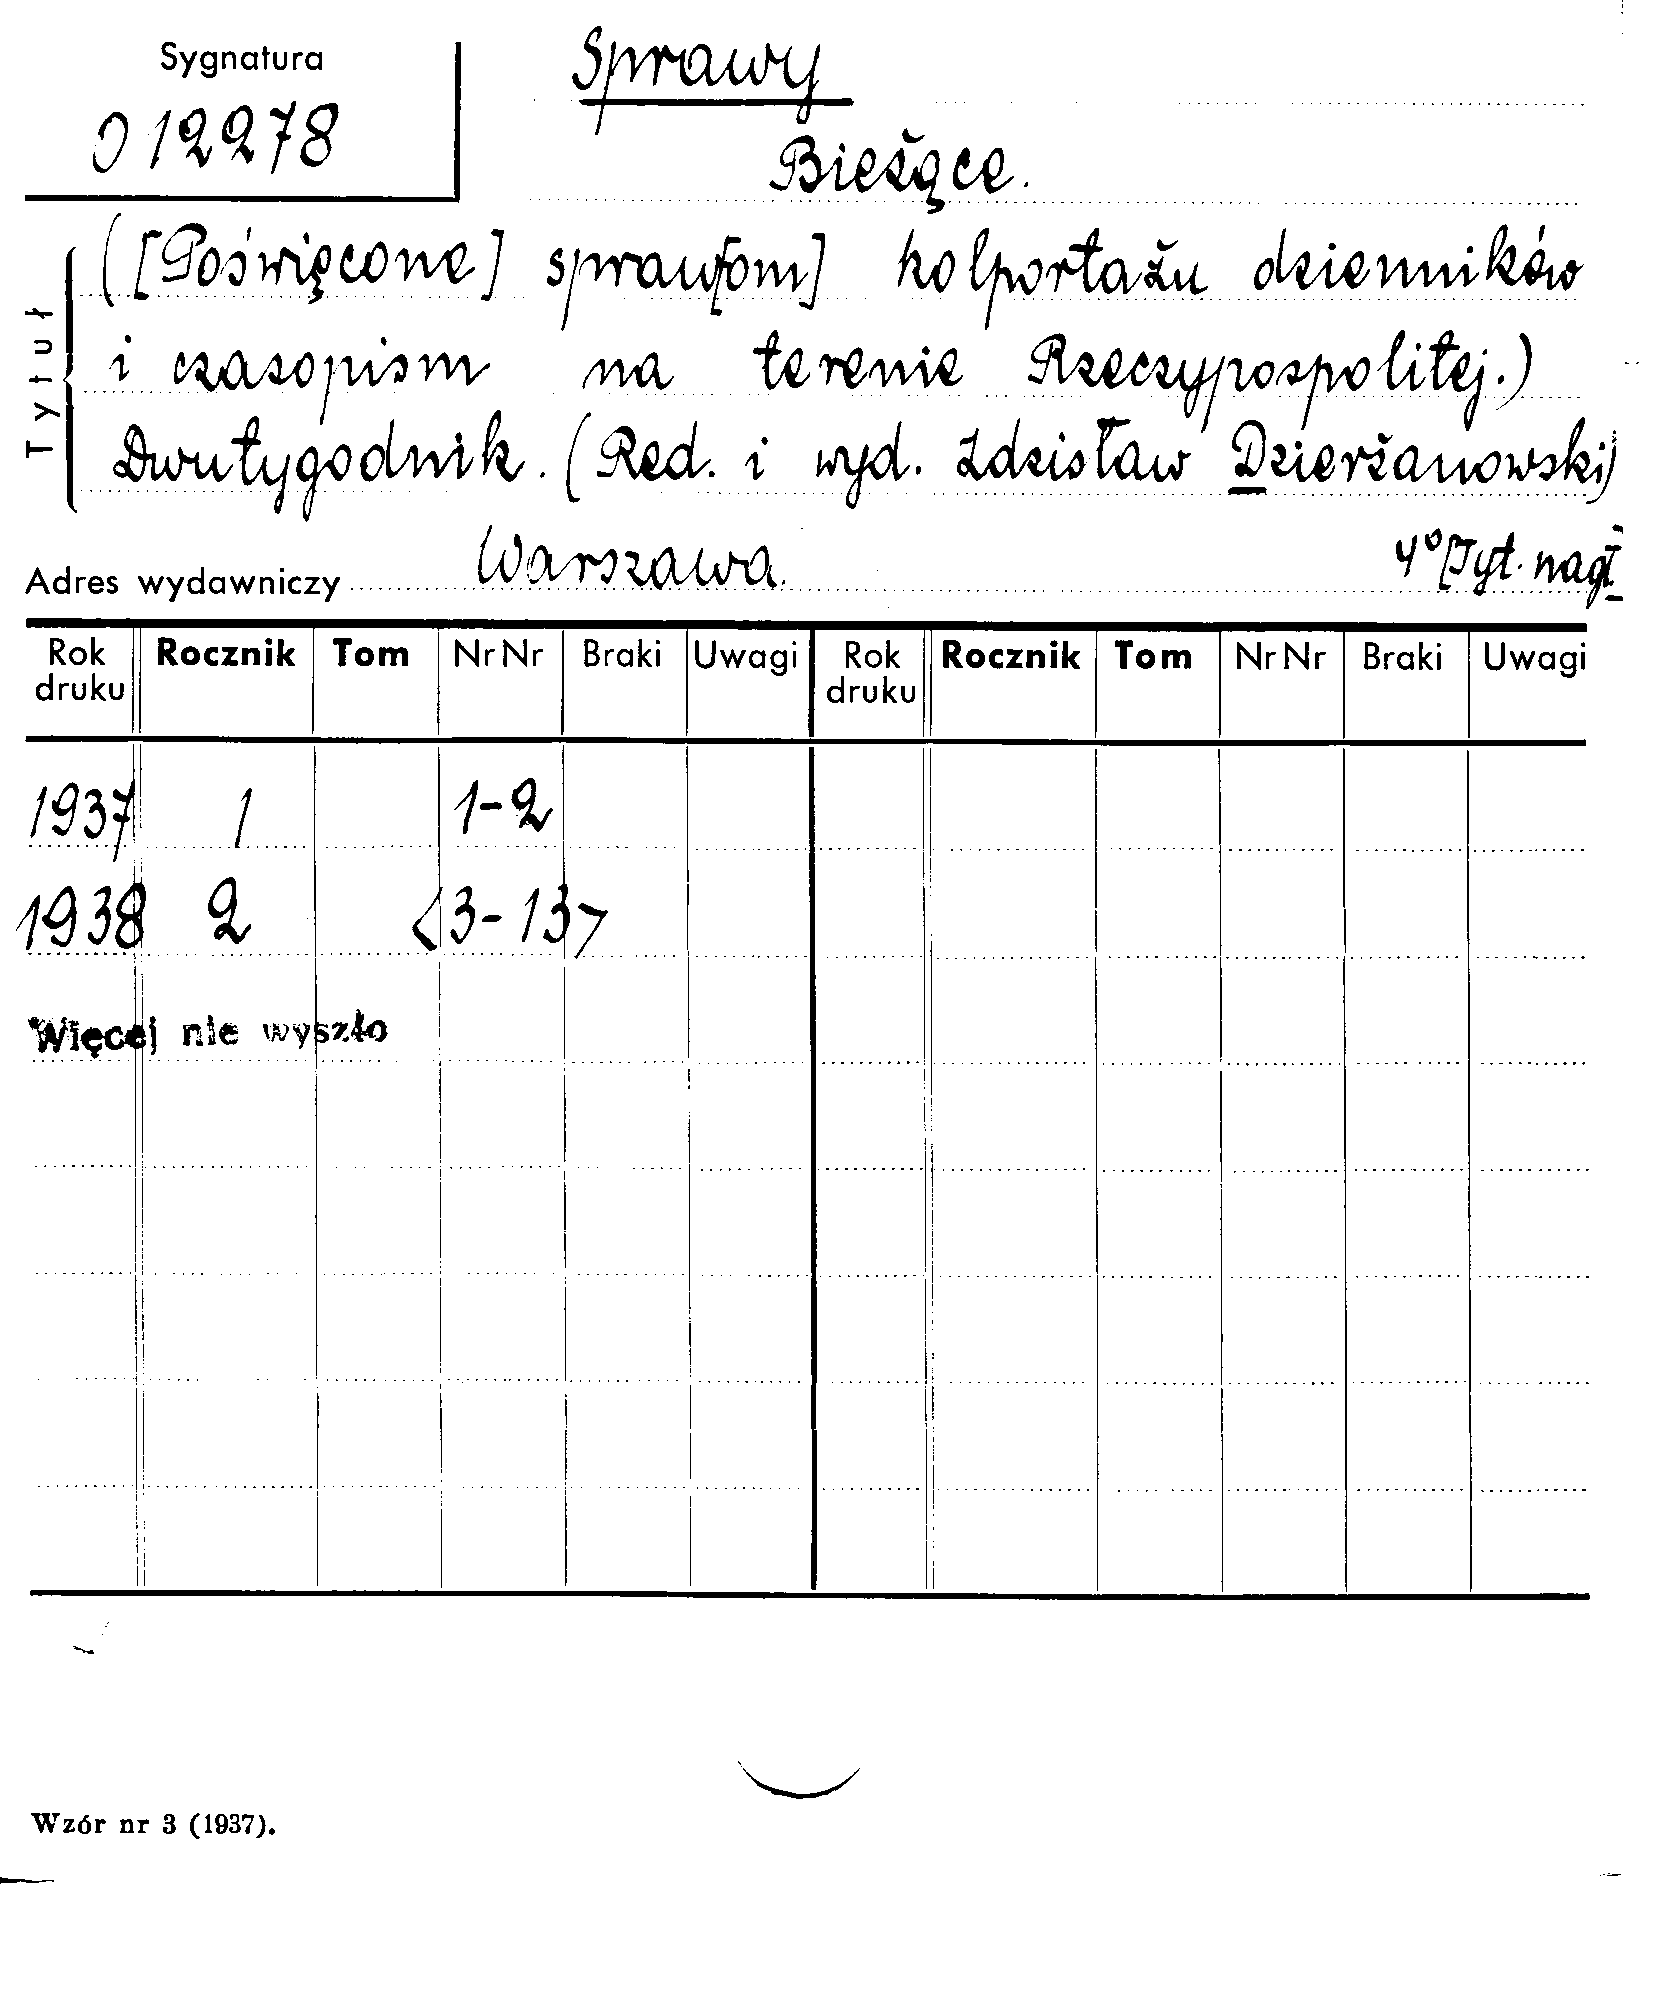 Sygnatura
012278
Sprawy
Bieżące.
Tytuł
([Poświęcone] spraw[om] kolportażu dzienników
i czasopism na terenie Rzeczypospolitej.)
Dwutygodnik. (Red. i wyd. Zdzisław Dzierżanowski)
Adres wydawniczy Warszawa. 4° [Tyt. nagł
Rok druku Rocznik Tom Nr Nr Braki Uwagi Rok druku Rocznik Tom Nr Nr Braki Uwagi
1937 1 1-2
1938 2 <3-13>
Więcej nie wyszło
Wzór nr 3 (1937).